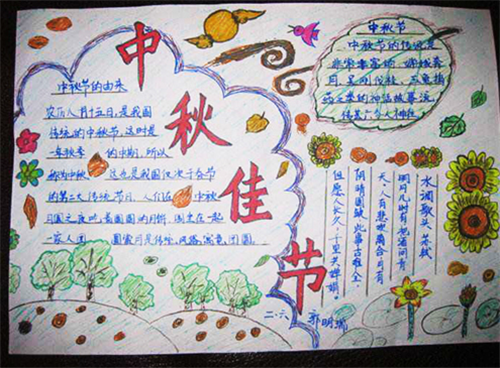 中秋佳节
中秋节的由来
农历八月十五日,是我国
传统的中秋节,这时是
一年秋季 的中期,所以
称为中秋 这也是我国仅次于春节
的第二大传统节日,人们在 中秋
月圆之夜吃着圆圆的月饼,围坐在一起
一家人团 圆赏月是传统 寓意团圆
中秋节
中秋节的传说是
非常丰富的,嫦娥奔
月,吴刚伐桂,玉兔捣
药之类的神话故事流
传甚广令人神往
水调歌头 苏轼
明月几时有,把酒问青
天,人有悲欢离合,月有
阴晴圆缺,此事古难全,
但愿人长久,千里共婵娟。
二.六 郭明